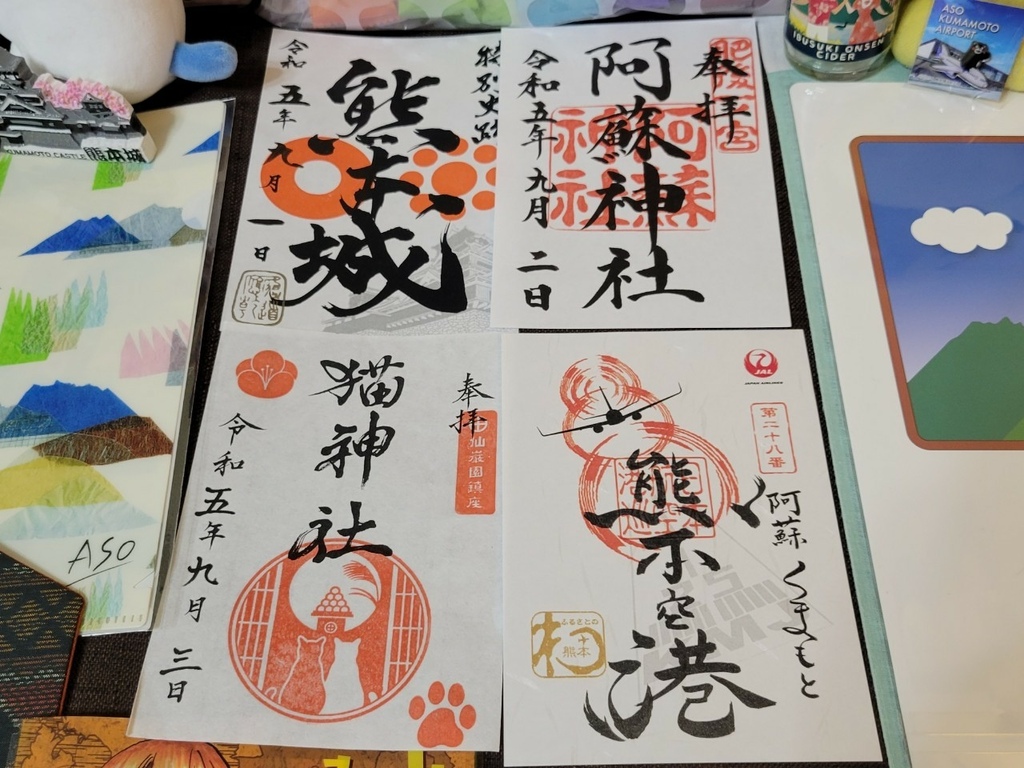 特別史跡
熊本城
令和五年九月一日
奉拝
阿蘇神社
阿蘇神社
令和五年九月二日
奉拝
仙巌園鎮座
猫神社
令和五年九月三日
JAL
JAPAN AIRLINES
第二十八番
阿蘇くまもと
熊本空港
ふるさとの
熊本
KUMAMOTO CASTLE 熊本城
ASO
IBUSUKI ONSEN
CIDER
ASO
KUMAMOTO
AIRPORT